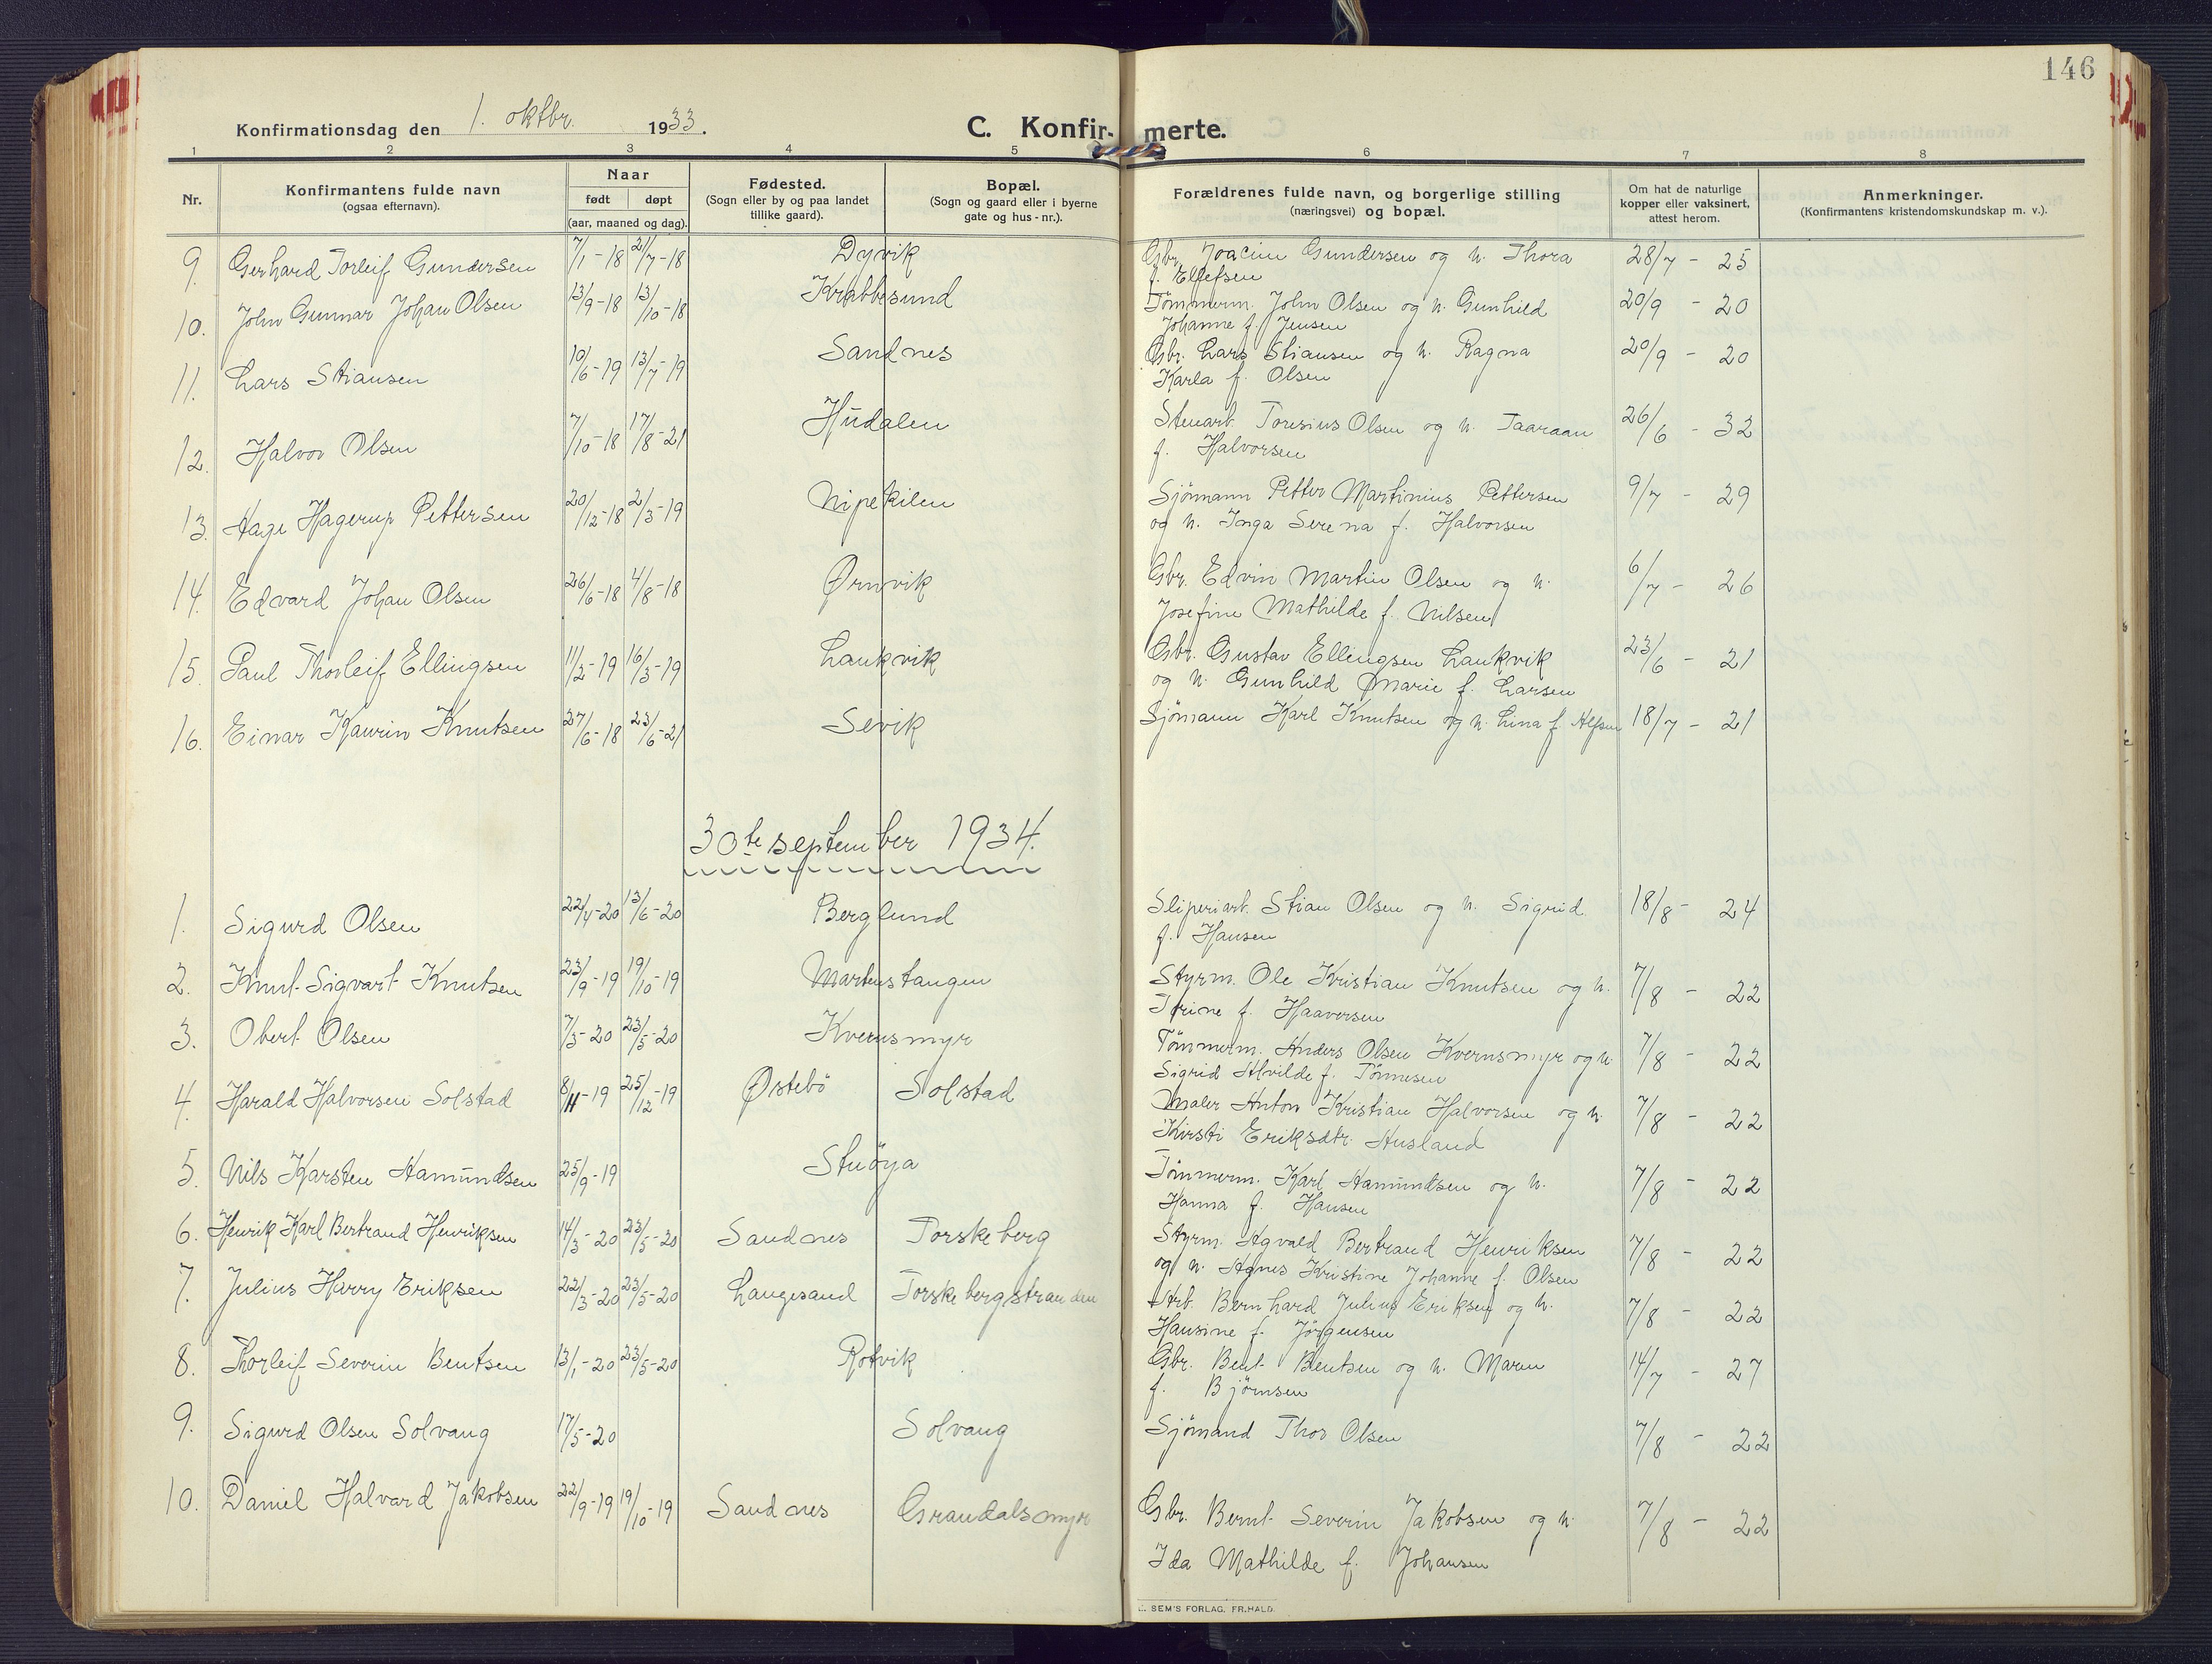 146
Konfirmationsdag den 1. oktbr. 1933.
C. Konfir- merte.
1 2 3 4 5 6 7 8
Nr.
Konfirmantens fulde navn
(ogsaa efternavn).
Naar
født døpt
(aar, maaned og dag).
Fødested.
(Sogn eller by og paa landet
tillike gaard).
Bopæl.
(Sogn og gaard eller i byerne
gate og hus-nr.).
Forældrenes fulde navn, og borgerlige stilling
(næringsvei) og bopæl.
Om hat de naturlige
kopper eller vaksinert,
attest herom.
Anmerkninger.
(Konfirmantens kristendomskundskap m. v.).
9. Gerhard Torleif Gundersen 7/1-18 21/7-18 Dyvik Gbr. Joacim Gundersen og h. Thora 28/7 - 25
f. Ellefsen
10. John Gunnar Johan Olsen 13/9-18 13/10-18 Krabbesund Tömmerm. John Olsen og h. Gunhild 20/9 - 20
Johanne f. Jensen
11. Lars Stiansen 10/6-19 13/7-19 Sandnes Gbr. Lars Stiansen og h. Ragna 20/9 - 20
Karla f. Olsen
12. Halvor Olsen 7/10-18 17/8-21 Hudalen Stenarb. Toresius Olsen og h. Taaraan 26/6 - 32
f. Halvorsen
13. Aage Hagerup Pettersen 20/12-18 2/3-19 Nipekilen Sjömann Petter Martinius Pettersen 9/7 - 29
og h. Inga Serena f. Halvorsen
14. Edvard Johan Olsen 26/6-18 4/8-18 Ørnvik Gbr. Edvin Martin Olsen og h. 6/7 - 26
Josefine Mathilde f. Nilsen
15. Paul Thorleif Ellingsen 11/2-19 16/3-19 Laukvik Gbr. Gustav Ellingsen Laukvik 23/6 - 21
og h. Gunhild Marie f. Larsen
16. Einar Kaurin Knutsen 27/6-18 23/6-21 Sevik Sjömann Karl Knutsen og h. Lina f. Alfsen 18/7 - 21
30te september 1934.
1. Sigurd Olsen 22/4-20 13/6-20 Berglund Sliperiarb. Stian Olsen og h. Sigrid 18/8 - 24
f. Hansen
2. Knut Sigvart Knutsen 23/9-19 19/10-19 Martenstangen Styrm. Ole Kristian Knutsen og h. 7/8 - 22
Trine f. Haaversen
3. Obert Olsen 7/3-20 23/5-20 Kvernsmyr Tömmerm. Anders Olsen Kvernsmyr og h. 7/8 - 22
Sigrid Alvilde f. Tönnesen
4. Harald Halvorsen Solstad 8/11-19 25/12-19 Østebö Solstad Maler Anton Kristian Halvorsen og h. 7/8 - 22
Kirsti Eriksdtr. Ausland
5. Nils Karsten Aamundsen 25/9-19 Stuöya Tömmerm. Karl Aamundsen og h. 7/8 - 22
Hanna f. Hansen
6. Henrik Karl Bertrand Henriksen 14/3-20 23/5-20 Sandnes Torskeberg Styrm. Agvald Bertrand Henriksen 7/8 - 22
og h. Agnes Kristine Johanne f. Olsen
7. Julius Harry Eriksen 22/3-20 23/5-20 Langesand Torskebergstranden Arb. Bernhard Julius Eriksen og h. 7/8 - 22
Hansine f. Jörgensen
8. Thorleif Severin Bentsen 13/1-20 23/5-20 Rotvik Gbr. Bent Bentsen og h. Maren 14/7 - 27
f. Björnsen
9. Sigurd Olsen Solvang 17/5-20 Solvang Sjömand Thor Olsen 7/8 - 22
10. Daniel Halvard Jakobsen 22/9-19 19/10-19 Sandnes Grandalsmyr Gbr. Bernt Severin Jakobsen og h. 7/8 - 22
Ida Mathilde f. Johansen
SEM'S FORLAG, FR.HALD.